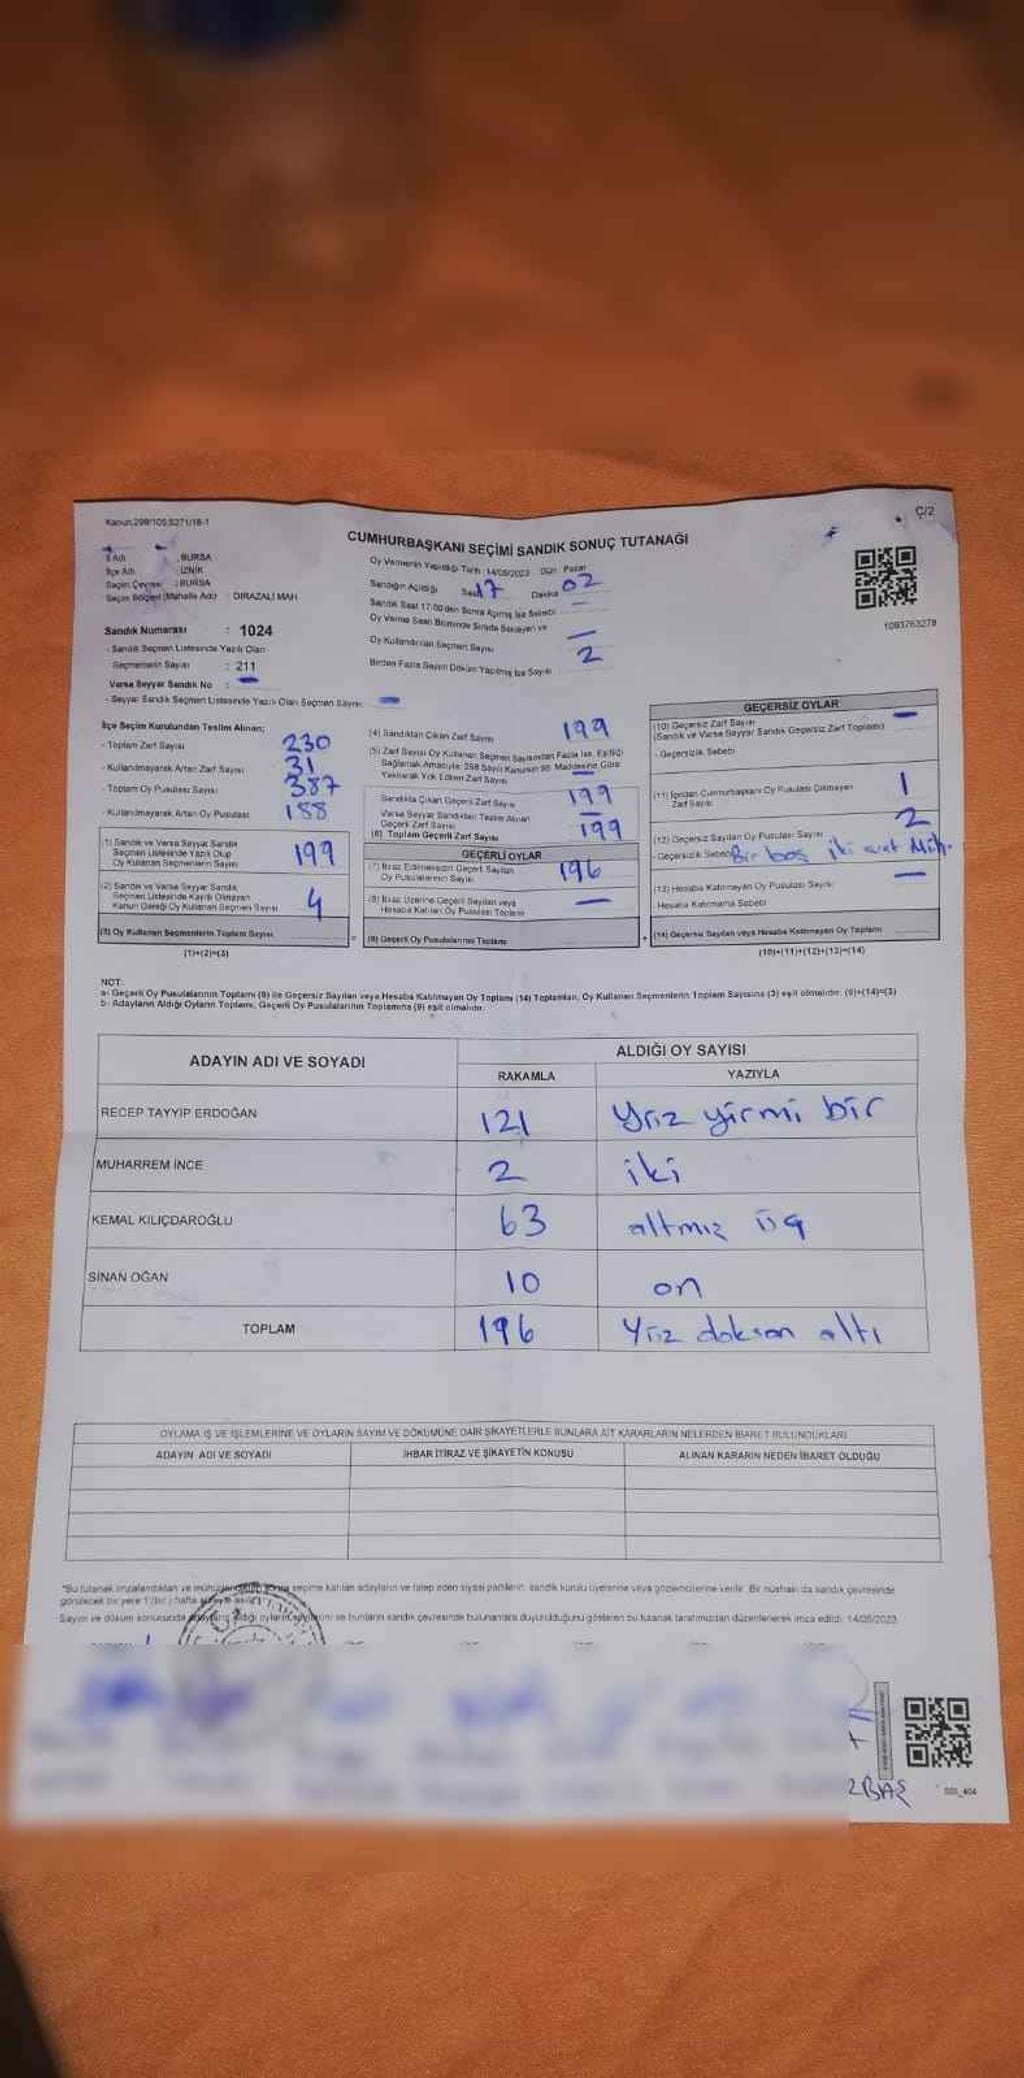 Kanun:298/105,6271/18-1
Ç/2
CUMHURBAŞKANI SEÇİMİ SANDIK SONUÇ TUTANAĞI
İl Adı : BURSA
İlçe Adı : İZNİK
Seçim Çevresi : BURSA
Seçim Bölgesi (Mahalle Adı) : DIRAZALİ MAH
Sandık Numarası : 1024
- Sandık Seçmen Listesinde Yazılı Olan
Seçmenlerin Sayısı : 211
Varsa Seyyar Sandık No : —
- Seyyar Sandık Seçmen Listesinde Yazılı Olan Seçmen Sayısı —
Oy Vermenin Yapıldığı Tarih :14/05/2023 Gün: Pazar
Sandığın Açıldığı Saat 17 Dakika 02
Sandık Saat 17:00'den Sonra Açılmış İse Sebebi —
Oy Verme Saati Bitiminde Sırada Bekleyen ve
Oy Kullandırılan Seçmen Sayısı —
Birden Fazla Sayım Döküm Yapılmış İse Sayısı 2
1093763278
İlçe Seçim Kurulundan Teslim Alınan;
- Toplam Zarf Sayısı 230
- Kullanılmayarak Artan Zarf Sayısı 31
- Toplam Oy Pusulası Sayısı 387
- Kullanılmayarak Artan Oy Pusulası 188
(1) Sandık ve Varsa Seyyar Sandık
Seçmen Listesinde Yazılı Olup
Oy Kullanan Seçmenlerin Sayısı 199
(2) Sandık ve Varsa Seyyar Sandık
Seçmen Listesinde Kayıtlı Olmayan
Kanun Gereği Oy Kullanan Seçmen Sayısı 4
(3) Oy Kullanan Seçmenlerin Toplam Sayısı
(1)+(2)=(3)
(4) Sandıktan Çıkan Zarf Sayısı 199
(5) Zarf Sayısı Oy Kullanan Seçmen Sayısından Fazla İse, Eşitliği
Sağlamak Amacıyla; 298 Sayılı Kanunun 98. Maddesine Göre
Yakılarak Yok Edilen Zarf Sayısı —
Sandıkta Çıkan Geçerli Zarf Sayısı 199
Varsa Seyyar Sandıktan Teslim Alınan
Geçerli Zarf Sayısı —
(6) Toplam Geçerli Zarf Sayısı 199
GEÇERLİ OYLAR
(7) İtiraz Edilmeksizin Geçerli Sayılan
Oy Pusulalarının Sayısı 196
(8) İtiraz Üzerine Geçerli Sayılan veya
Hesaba Katılan Oy Pusulası Toplamı —
= (9) Geçerli Oy Pusulalarının Toplamı
GEÇERSİZ OYLAR
(10) Geçersiz Zarf Sayısı —
(Sandık ve Varsa Seyyar Sandık Geçersiz Zarf Toplamı)
- Geçersizlik Sebebi
(11) İçinden Cumhurbaşkanı Oy Pusulası Çıkmayan
Zarf Sayısı 1
(12) Geçersiz Sayılan Oy Pusulası Sayısı 2
- Geçersizlik Sebebi Bir boş iki Müh.
(13) Hesaba Katılmayan Oy Pusulası Sayısı —
Hesaba Katılmama Sebebi
+ (14) Geçersiz Sayılan veya Hesaba Katılmayan Oy Toplamı
(10)+(11)+(12)+(13)=(14)
NOT:
a- Geçerli Oy Pusulalarının Toplamı (9) ile Geçersiz Sayılan veya Hesaba Katılmayan Oy Toplamı (14) Toplamları, Oy Kullanan Seçmenlerin Toplam Sayısına (3) eşit olmalıdır. (9)+(14)=(3)
b- Adayların Aldığı Oyların Toplamı, Geçerli Oy Pusulalarının Toplamına (9) eşit olmalıdır.
ADAYIN ADI VE SOYADI
ALDIĞI OY SAYISI
RAKAMLA YAZIYLA
RECEP TAYYİP ERDOĞAN 121 Yüz yirmi bir
MUHARREM İNCE 2 iki
KEMAL KILIÇDAROĞLU 63 altmız üç
SİNAN OĞAN 10 on
TOPLAM 196 Yüz doksan altı
OYLAMA İŞ VE İŞLEMLERİNE VE OYLARIN SAYIM VE DÖKÜMÜNE DAİR ŞİKAYETLERLE BUNLARA AİT KARARLARIN NELERDEN İBARET BULUNDUKLARI
ADAYIN ADI VE SOYADI İHBAR İTİRAZ VE ŞİKAYETİN KONUSU ALINAN KARARIN NEDEN İBARET OLDUĞU
*Bu tutanak imzalandıktan ve mühürlendikten sonra seçime katılan adayların ve talep eden siyasi partilerin, sandık kurulu üyelerine veya gözlemcilerine verilir. Bir nüshası da sandık çevresinde
görülecek bir yere 1 (bir) hafta süreyle asılır.
Sayım ve döküm sonucunda adayların aldığı oyların sayılarını ve bunların sandık çevresinde bulunanlara duyurulduğunu gösteren bu tutanak tarafımızdan düzenlenerek imza edildi. 14/05/2023